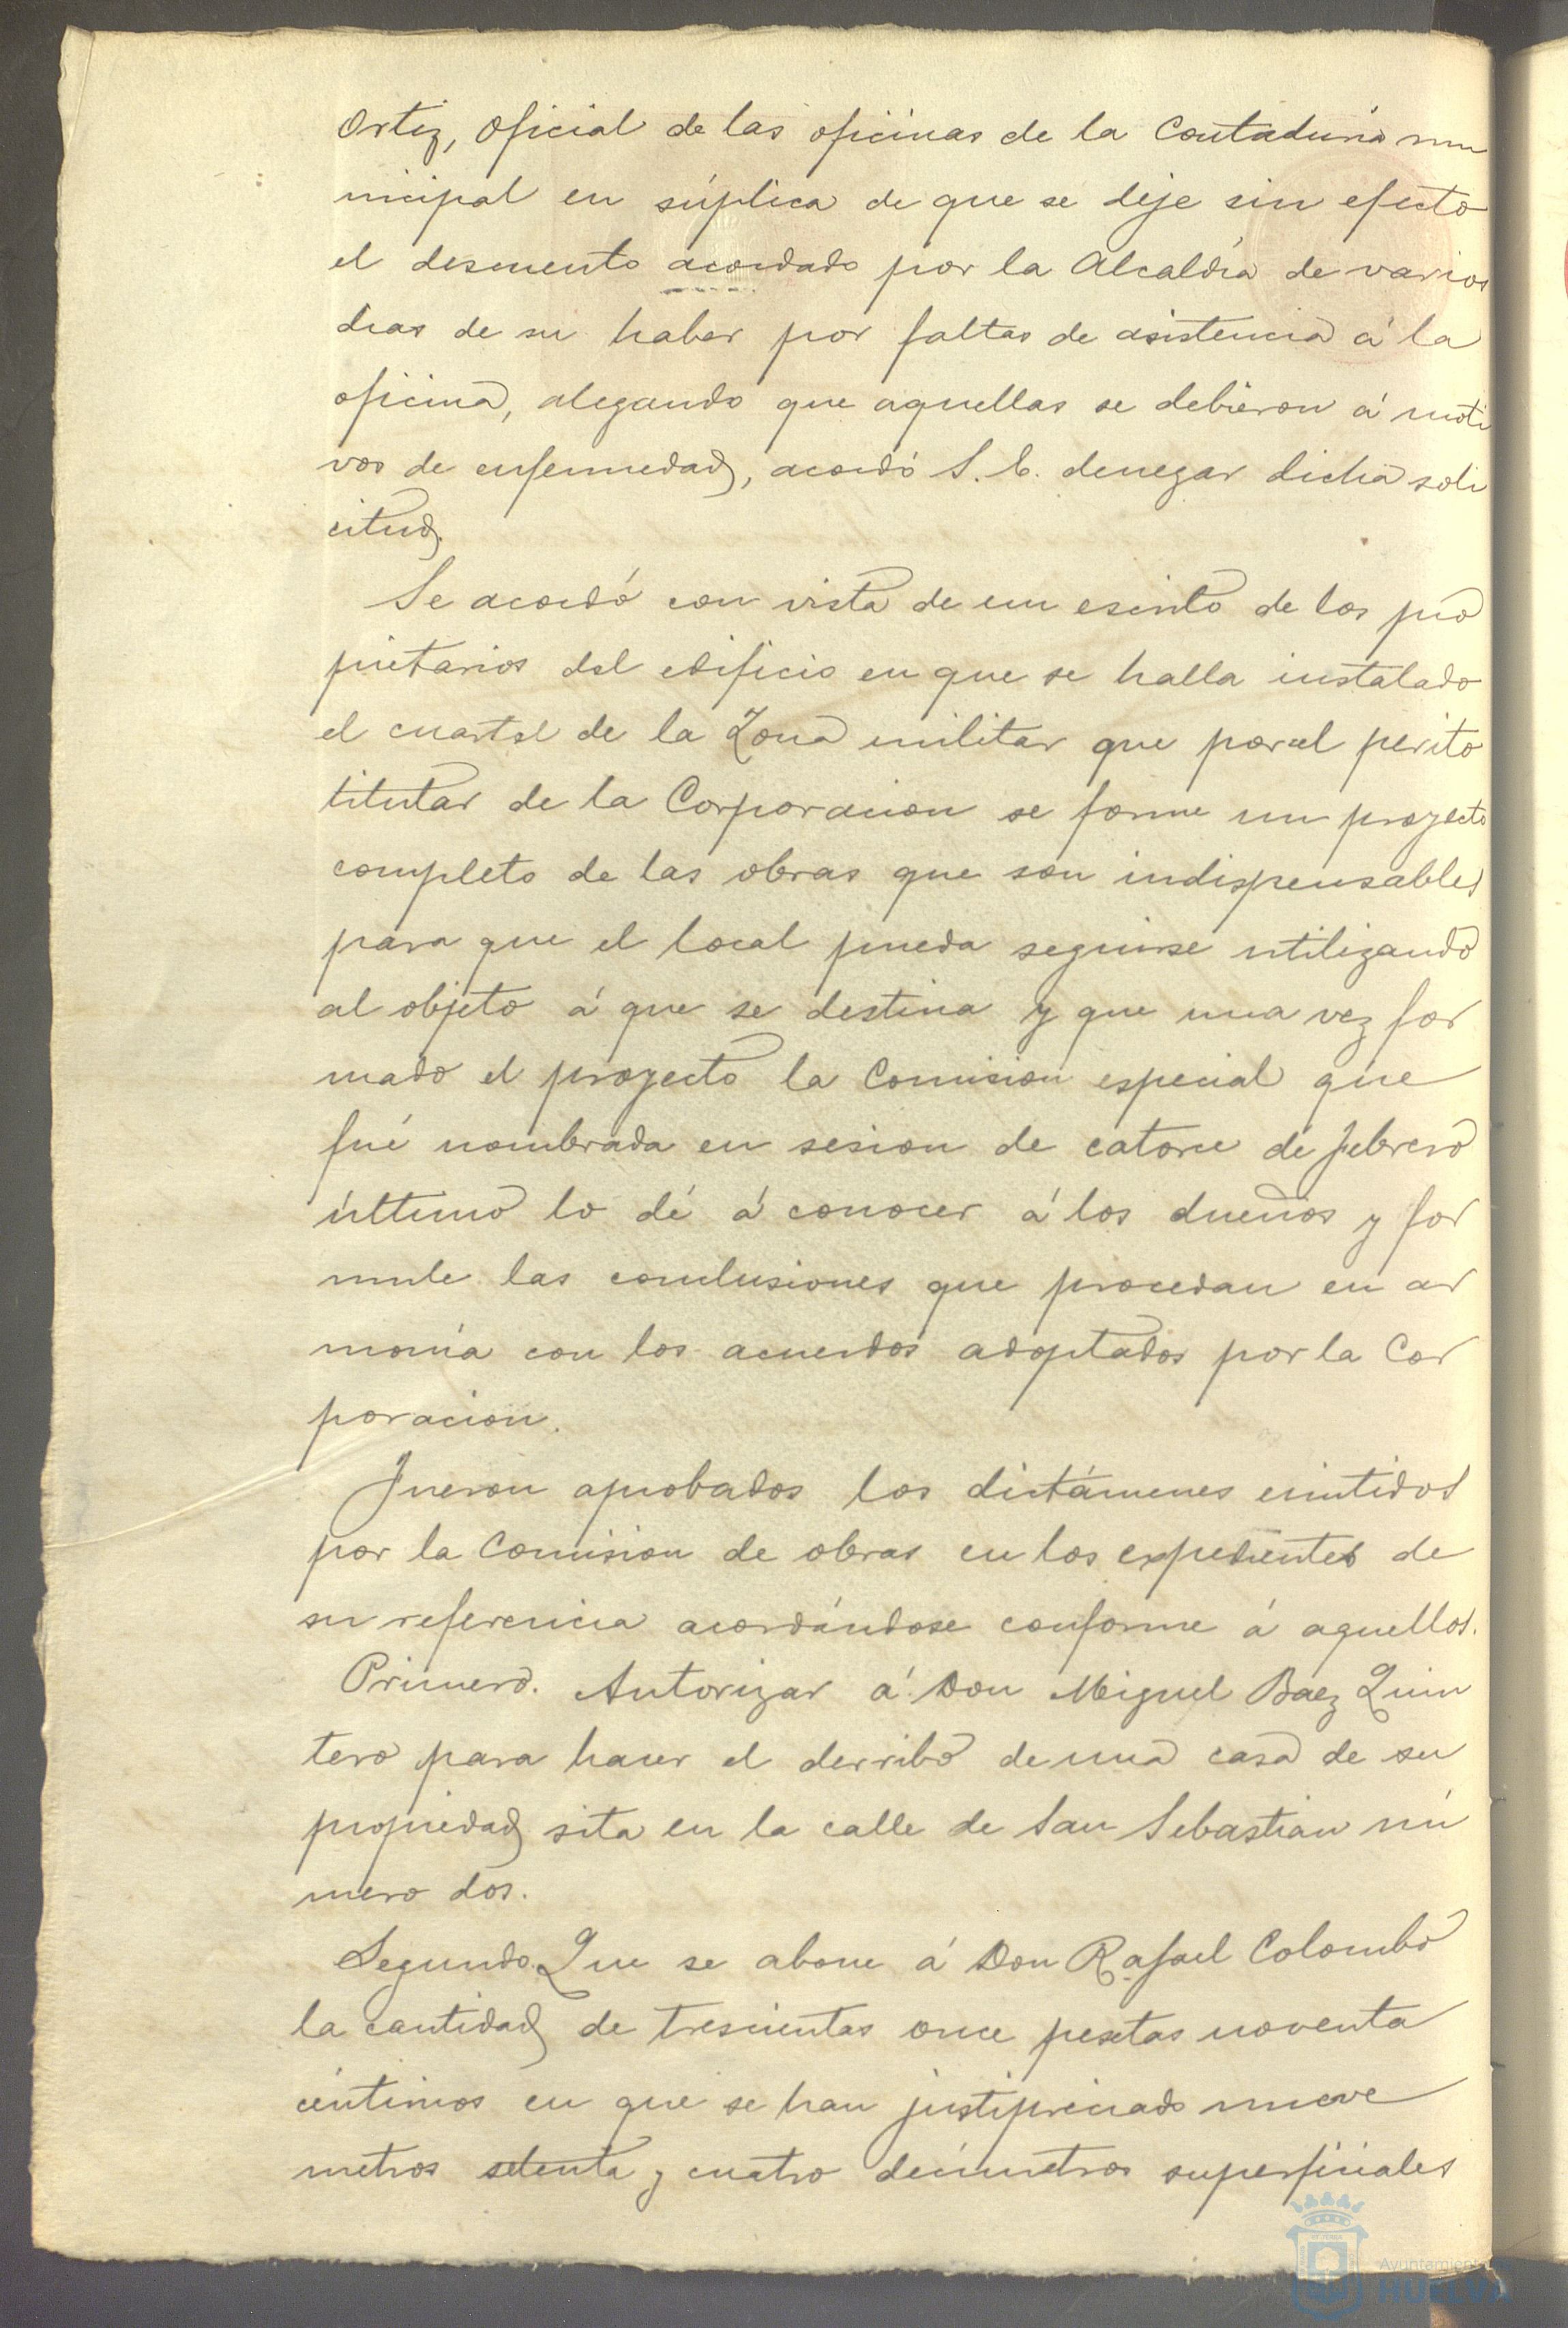 Ortiz, Oficial de las oficinas de la Contaduría mu
nicipal en súplica de que se deje sin efecto
el descuento acordado por la Alcaldía de varios
dias de su haber por faltas de asistencia á la
oficina, alegando que aquellas se debieron á moti
vos de enfermedad, acordó S. E. denegar dicha soli
citud.
Se acordó con vista de un escrito de los pro
pietarios del edificio en que se halla instalado
el cuartel de la Zona militar que por el perito
titular de la Corporacion se forme un proyecto
completo de las obras que son indispensables
para que el local pueda seguirse utilizando
al objeto á que se destina y que una vez for
mado el proyecto la Comision especial que
fué nombrada en sesion de catorce de febrero
último lo dé á conocer á los dueños y for
mule las conclusiones que procedan en ar
monía con los acuerdos adoptados por la Cor
poracion.
Fueron aprobados los dictámenes emitidos
por la Comision de obras en los expedientes de
su referencia acordándose conforme á aquellos.
Primero. Autorizar á Don Miguel Baez Quin
tero para hacer el derribo de una casa de su
propiedad sita en la calle de San Sebastian nú
mero dos.
Segundo. Que se abone á Don Rafael Colombo
la cantidad de trescientas once pesetas noventa
céntimos en que se han justipreciado nueve
metros setenta y cuatro decímetros superficiales
Ayuntamiento de
HUELVA